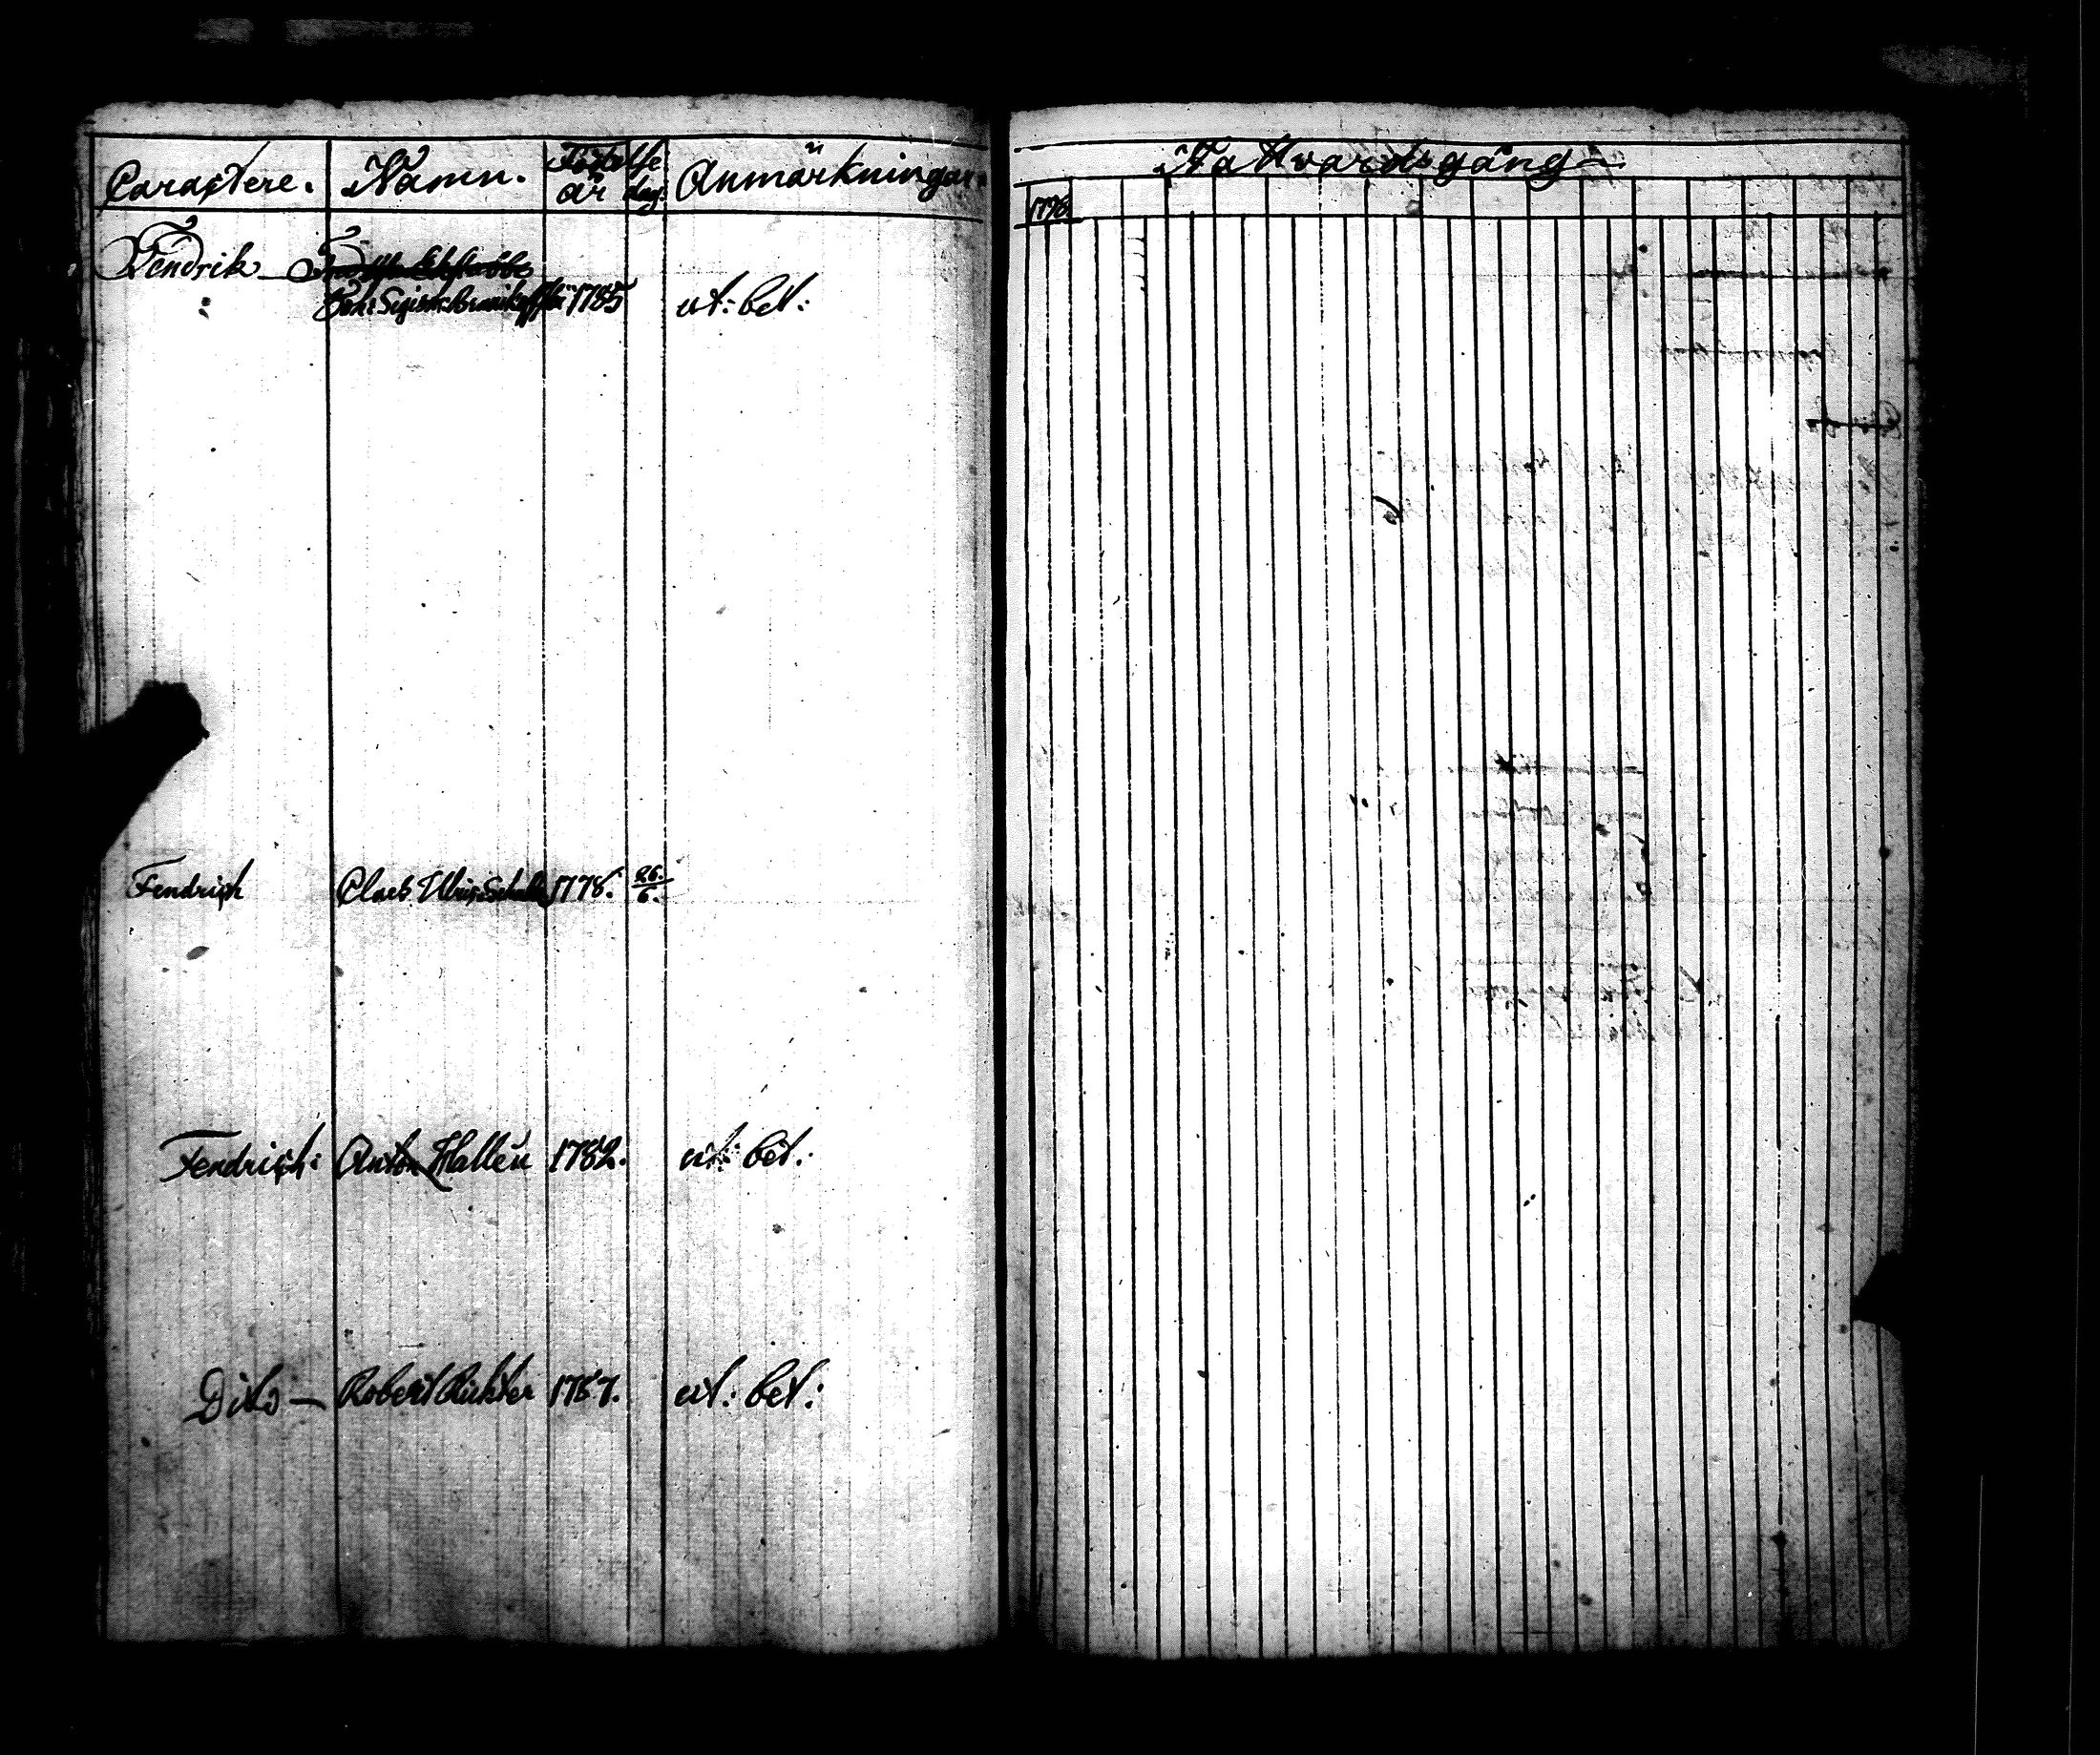 Caractere. Namn. Födelse Anmärkningar.
år dag.
Fendrik
Joh: Sigism: 1785 ut: bet:
Fendrich Claes Ulric Schultz 1778. 26./6.
Fendrich: Anton Hallen 1782. ut: bet:
Dito — Robert Richter 1787. ut: bet:
Nattvardsgång
1798